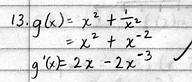 13. g(x) = x² + 1/x²
= x² + x⁻²
g'(x) = 2x - 2x⁻³